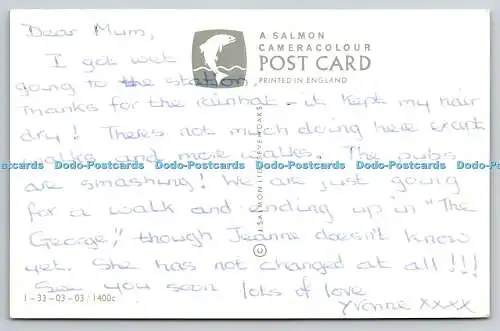 Dear Mum,
A SALMON
CAMERACOLOUR
POST CARD
PRINTED IN ENGLAND
I got wet
going to the station.
Thanks for the rainhat - it kept my hair
dry! There's not much doing here except
walks and more walks. The pubs
Dodo-Postcards Dodo-Postcards Dodo-Postcards Dodo-Postcards Dodo-Postcards
are smashing! We are just going
for a walk and ending up in "The
George," though Jeanne doesn't know
yet. She has not changed at all!!!
See you soon lots of love
Yvonne xxxx
© J SALMON LTD SEVENOAKS
1-33-03-03/1400c